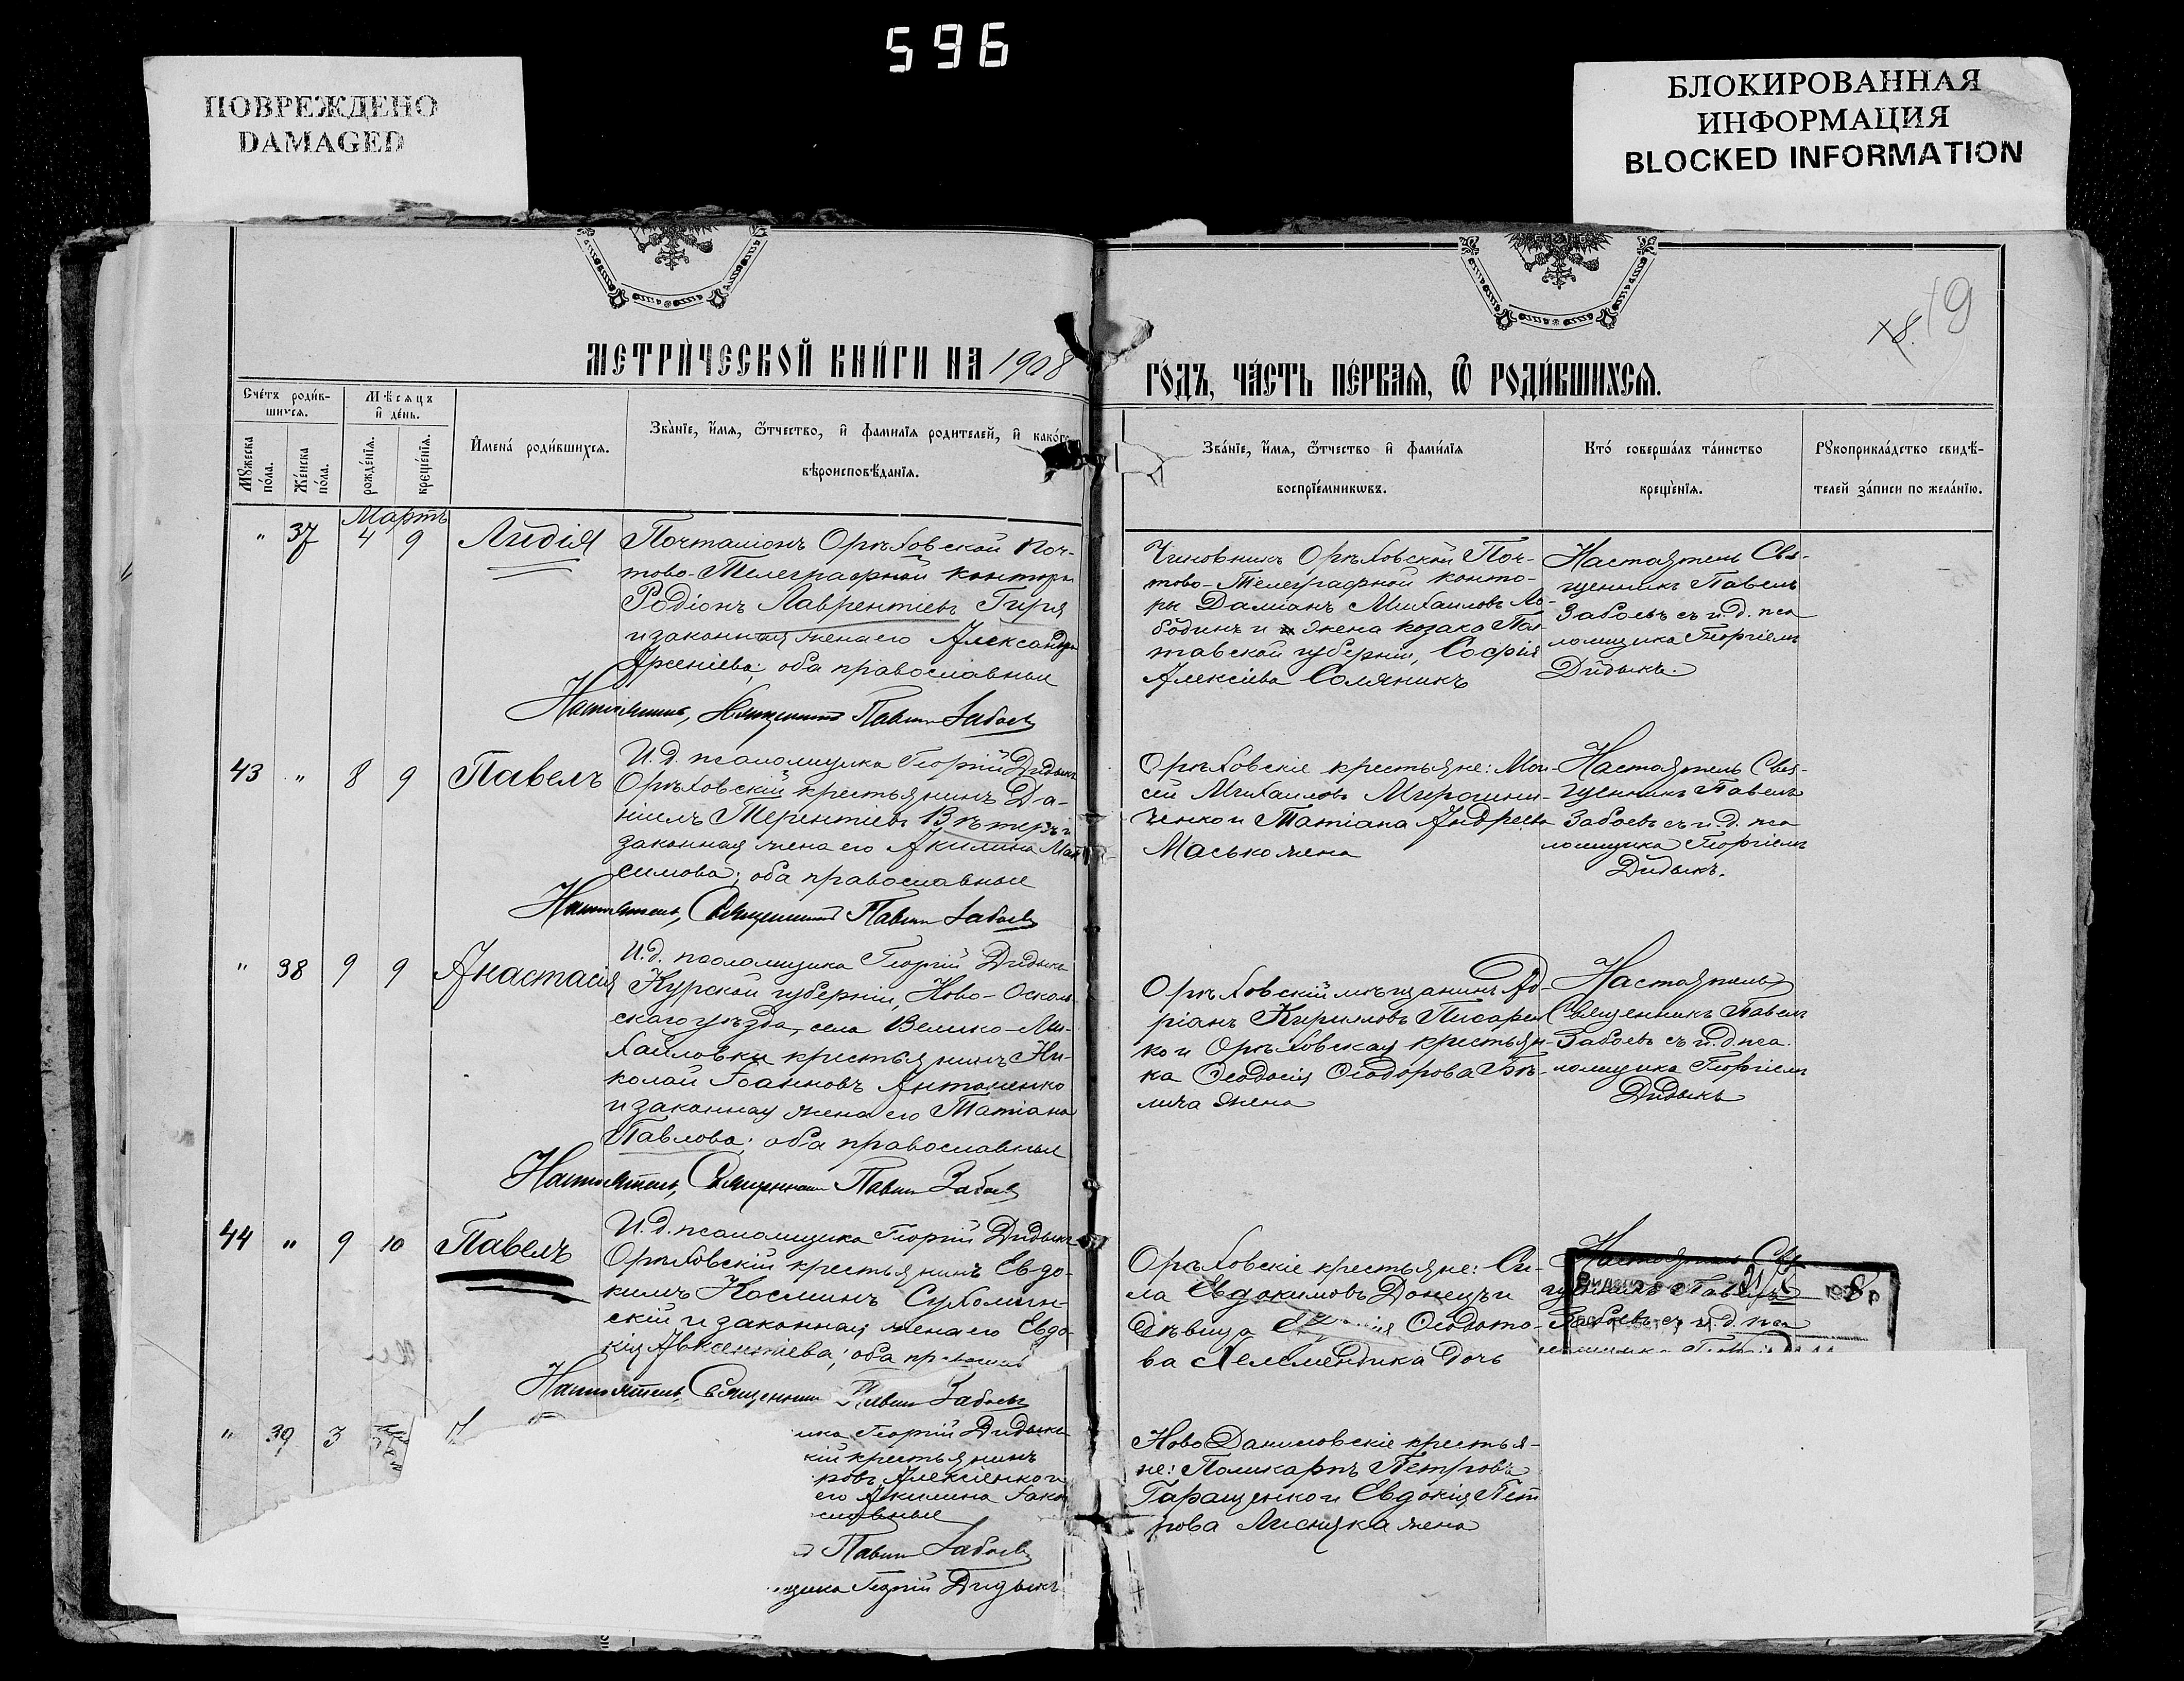 596
ПОВРЕЖДЕНО
DAMAGED
БЛОКИРОВАННАЯ
ИНФОРМАЦИЯ
BLOCKED INFORMATION
18. 19
МЕТРИ́ЧЕСКОЙ КНИ́ГИ НА 1908
ГО́ДЪ, ЧА́СТЬ ПЕ́РВАЯ, Ѿ РОДИ́ВШИХСЯ.
Сче́тъ роди́в-
шихся.
Мѣсяцъ
и де́нь.
Му́жеска
по́ла.
Же́нска
по́ла.
рожде́нїя.
креще́нїя.
Имена́ роди́вшихся.
Зва́нїе, и́мя, ѻ́тчество, и фамилїя родителей, и како́го
вѣроисповѣ́данїя.
Зва́нїе, и́мя, ѻ́тчество и фами́лїя
воспрїе́мникѡвъ.
Кто́ соверша́лъ та́инство
креще́нїя.
Рукоприкла́дство свидѣ́-
телей за́писи по жела́нїю.
Мартъ
" 37 4 9 Лидія
Почталіонъ Орѣховской Поч-
тово-Телеграфной конторы
Родіонъ Лаврентіевъ Гиря
и законная жена его Александра
Арсеніева; оба православные
Настоятель, Священникъ Павелъ Забаевъ
И.д. псаломщика Георгій Дидыкъ
Чиновникъ Орѣховской Поч-
тово-Телеграфной конто-
ры Даміанъ Михаиловъ Ло-
бодинъ и жена козака Пол-
тавской губерніи, Софія
Алексіева Соляникъ
Настоятель Свя-
щенникъ Павелъ
Забаевъ съ и.д. пса
ломщика Георгіемъ
Дидыкъ.
43 " 8 9 Павелъ
Орѣховскій крестьянинъ Да-
ніилъ Терентіевъ Вѣтеръ и
законная жена его Акилина Мак
симова; оба православные
Настоятель, Священникъ Павелъ Забаевъ
И.д. псаломщика Георгій Дидыкъ
Орѣховскіе крестьяне: Мои-
сей Михаиловъ Мирошни-
ченко и Татіана Андреева
Масько жена
Настоятель Свя-
щенникъ Павелъ
Забаевъ съ и.д. пса
ломщика Георгіемъ
Дидыкъ.
" 38 9 9 Анастасія
Курской губерніи, Ново-Осколь
скаго уѣзда, села Велико-Ми-
хайловки крестьянинъ Ни-
колай Іоанновъ Антоненко
и законная жена его Татіана
Павлова; оба православные
Настоятель, Священникъ Павелъ Забаевъ
И.д. псаломщика Георгій Дидыкъ
Орѣховскій мѣщанинъ Ад-
ріанъ Кирилловъ Писарен
ко и Орѣховская крестьян-
ка Ѳеодосія Ѳеодорова Бѣ-
лича жена
Настоятель
Священникъ Павелъ
Забаевъ съ и.д. пса
ломщика Георгіемъ
Дидыкъ
44 " 9 10 Павелъ
Орѣховскій крестьянинъ Евдо-
кимъ Косминъ Сухомлин-
скій и законная жена его Евдо-
кія Авксентіева; оба
Настоятель, Священникъ Павелъ Забаевъ
Орѣховскіе крестьяне: Си-
ла Евдокимовъ Донецъ и
дѣвица Ѳеодото-
ва Клеменчика дочь
Настоятель Свя-
щенникъ Павелъ
Забаевъ съ и.д. пса
" 39 3
Георгій Дидыкъ
кій крестьянинъ
ровъ Алексіенко и
его Акилина Іако
славные
Павелъ Забаевъ
щика Георгій Дидыкъ
Ново Даниловскіе крестья-
не: Поликарпъ Петровъ
Таращенко и Евдокія Пет
рова Лисняка жена